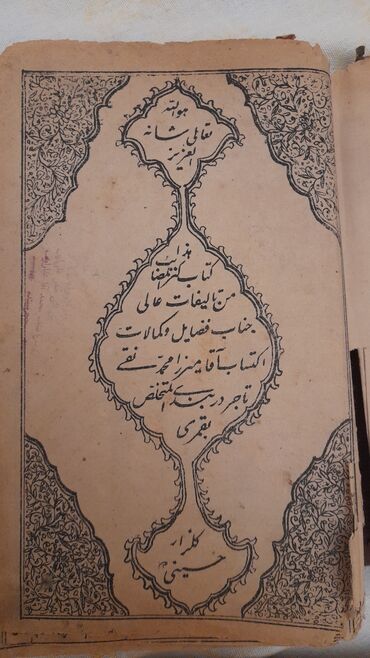 هوالله
تعالی شانه
العزیز
هذا
کتاب کنزالمصائب
من تالیفات عالی
جناب فضایل و کمالات
اکتساب آقا میرزا محمد تقی
تاجر دربندی المتخلص
بقمری
گلزار
حسینی